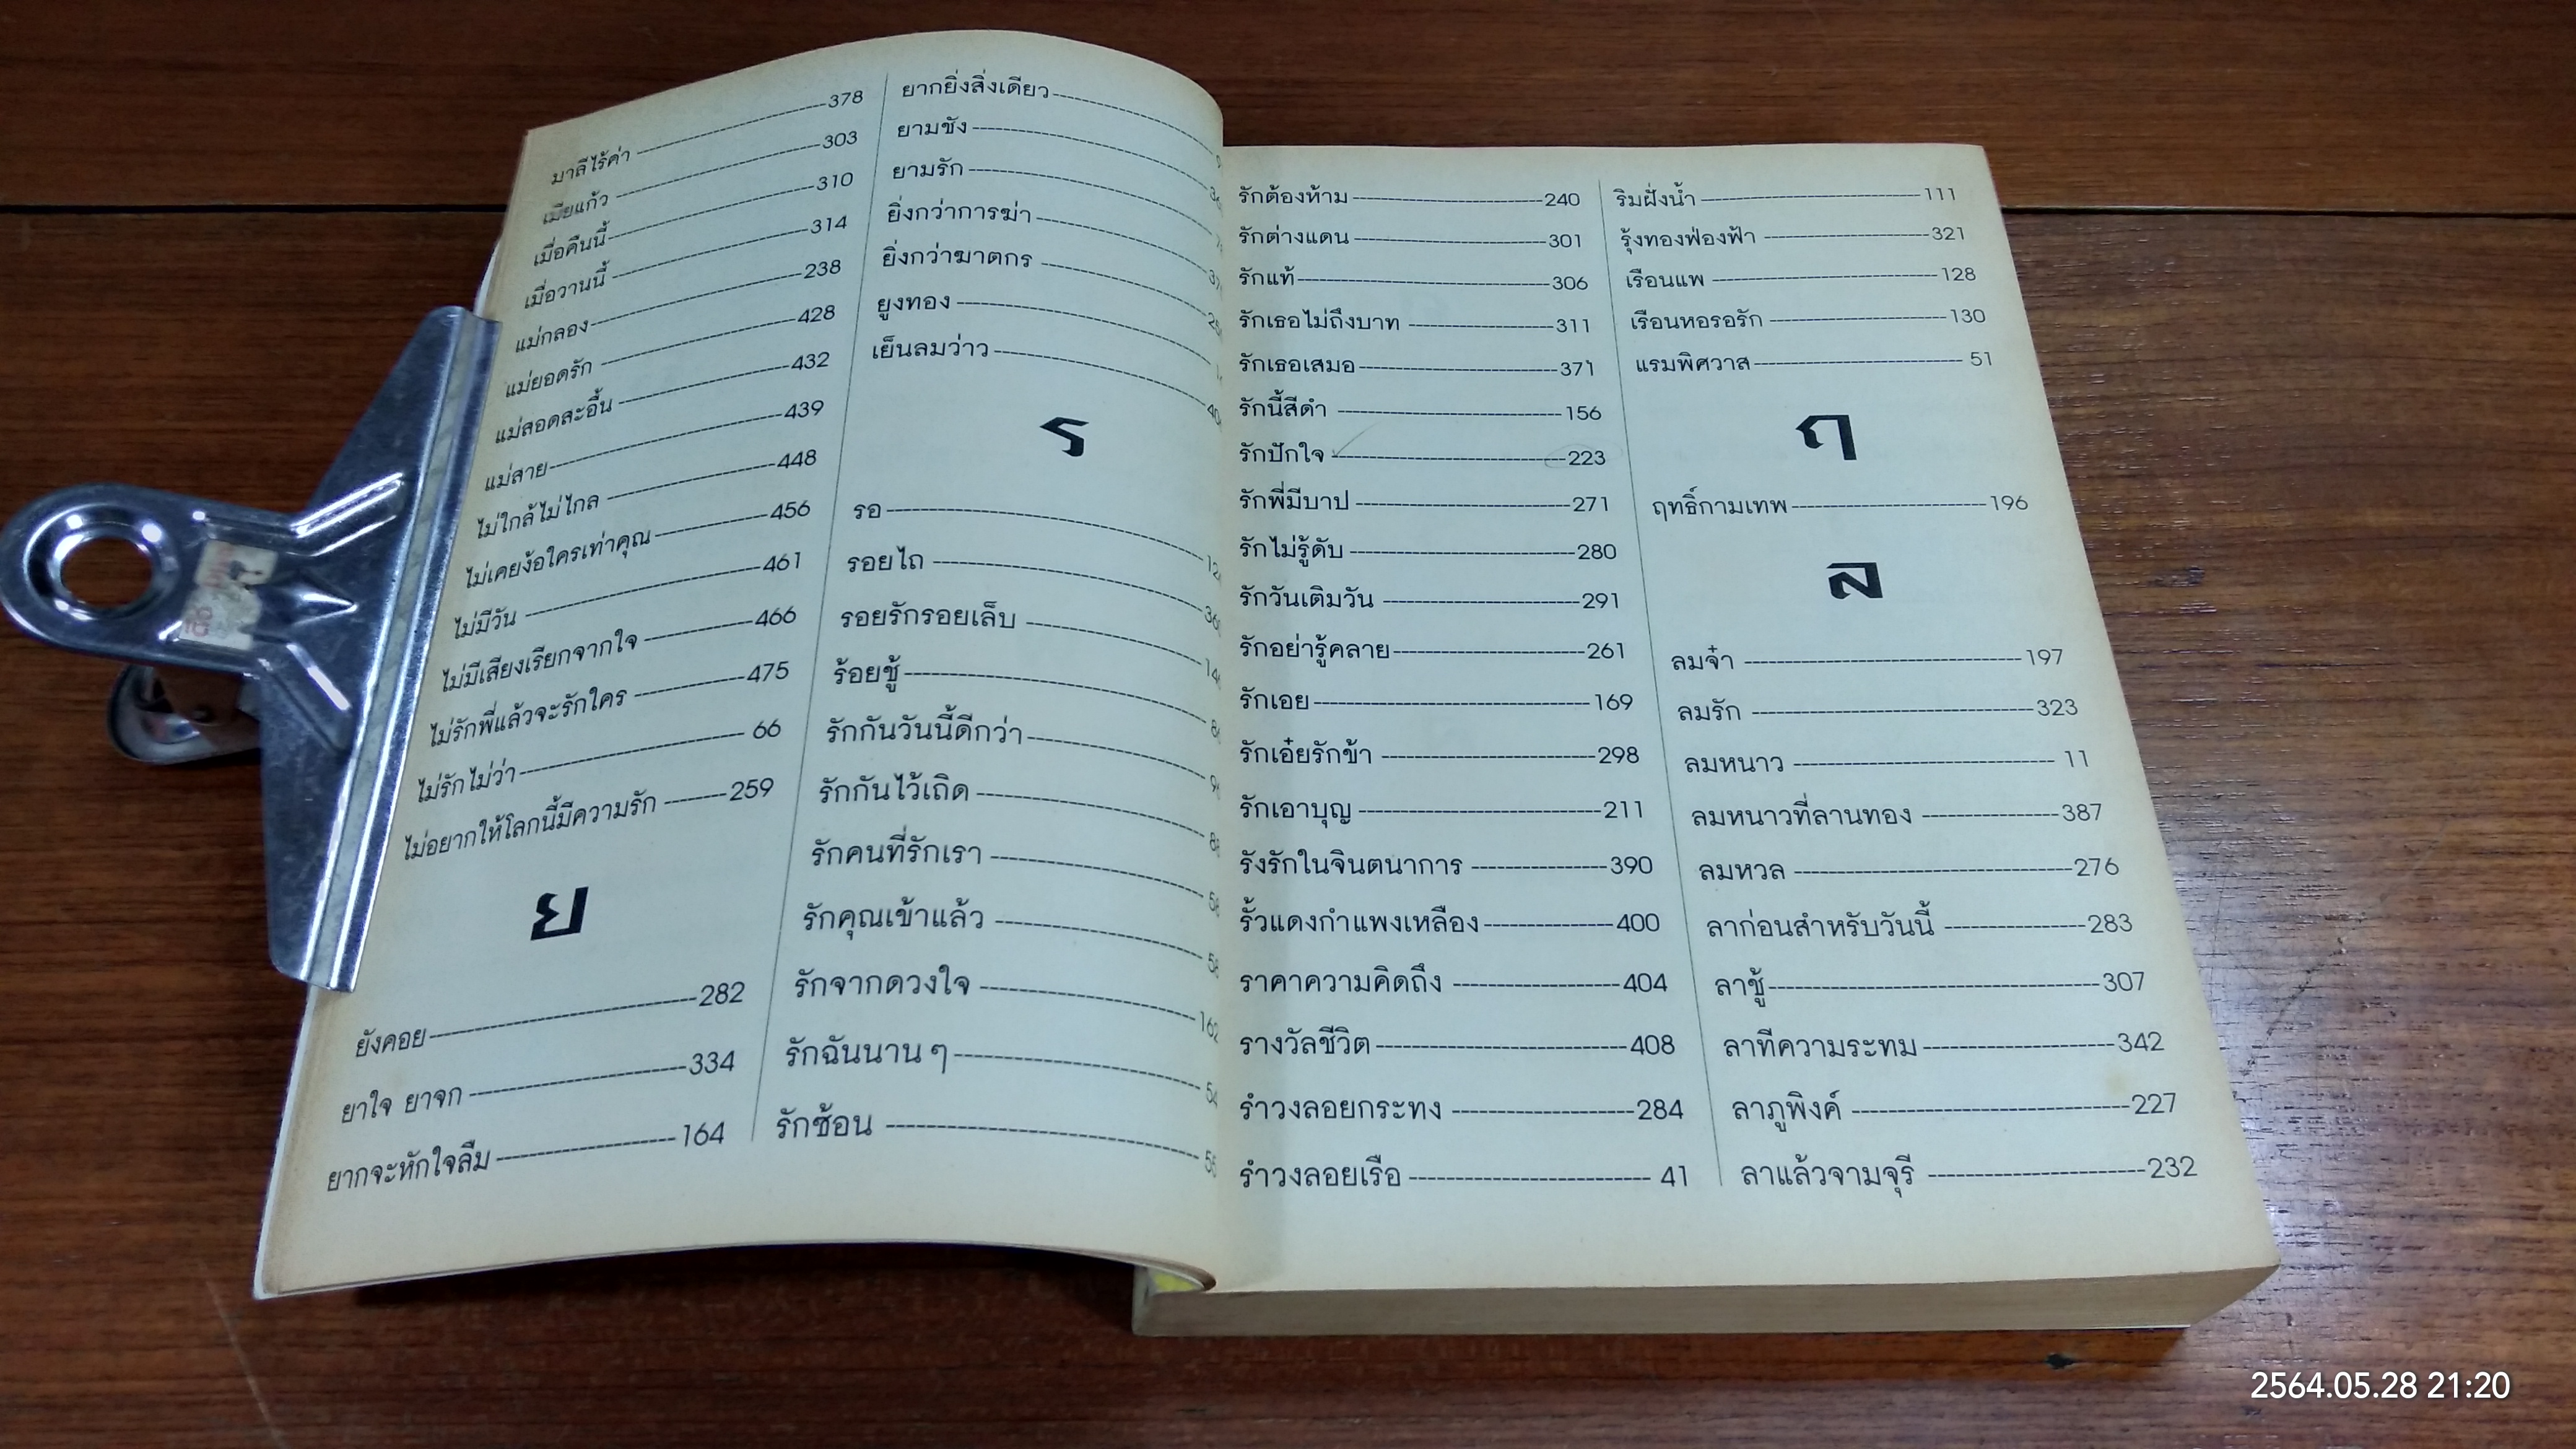 มาลีไร้ค่า 378
เมียแก้ว 303
เมื่อคืนนี้ 310
เมื่อวานนี้ 314
แม่กลอง 238
แม่ยอดรัก 428
แม่ลอดสะอื้น 432
แม่สาย 439
ไม่ใกล้ไม่ไกล 448
ไม่เคยง้อใครเท่าคุณ 456
ไม่มีวัน 461
ไม่มีเสียงเรียกจากใจ 466
ไม่รักพี่แล้วจะรักใคร 475
ไม่รักไม่ว่า 66
ไม่อยากให้โลกนี้มีความรัก 259
ย
ยังคอย 282
ยาใจ ยาจก 334
ยากจะหักใจลืม 164
ยากยิ่งสิ่งเดียว
ยามชัง
ยามรัก
ยิ่งกว่าการฆ่า
ยิ่งกว่าฆาตกร
ยูงทอง
เย็นลมว่าว
ร
รอ
รอยไถ
รอยรักรอยเล็บ
ร้อยชู้
รักกันวันนี้ดีกว่า
รักกันไว้เถิด
รักคนที่รักเรา
รักคุณเข้าแล้ว
รักจากดวงใจ 162
รักฉันนาน ๆ
รักซ้อน
รักต้องห้าม 240
รักต่างแดน 301
รักแท้ 306
รักเธอไม่ถึงบาท 311
รักเธอเสมอ 371
รักนี้สีดำ 156
รักปักใจ 223
รักพี่มีบาป 271
รักไม่รู้ดับ 280
รักวันเติมวัน 291
รักอย่ารู้คลาย 261
รักเอย 169
รักเอ๋ยรักข้า 298
รักเอาบุญ 211
รังรักในจินตนาการ 390
รั้วแดงกำแพงเหลือง 400
ราคาความคิดถึง 404
รางวัลชีวิต 408
รำวงลอยกระทง 284
รำวงลอยเรือ 41
ริมฝั่งน้ำ 111
รุ้งทองฟ่องฟ้า 321
เรือนแพ 128
เรือนหอรอรัก 130
แรมพิศวาส 51
ฤ
ฤทธิ์กามเทพ 196
ล
ลมจ๋า 197
ลมรัก 323
ลมหนาว 11
ลมหนาวที่ลานทอง 387
ลมหวล 276
ลาก่อนสำหรับวันนี้ 283
ลาชู้ 307
ลาทีความระทม 342
ลาภูพิงค์ 227
ลาแล้วจามจุรี 232
2564.05.28 21:20